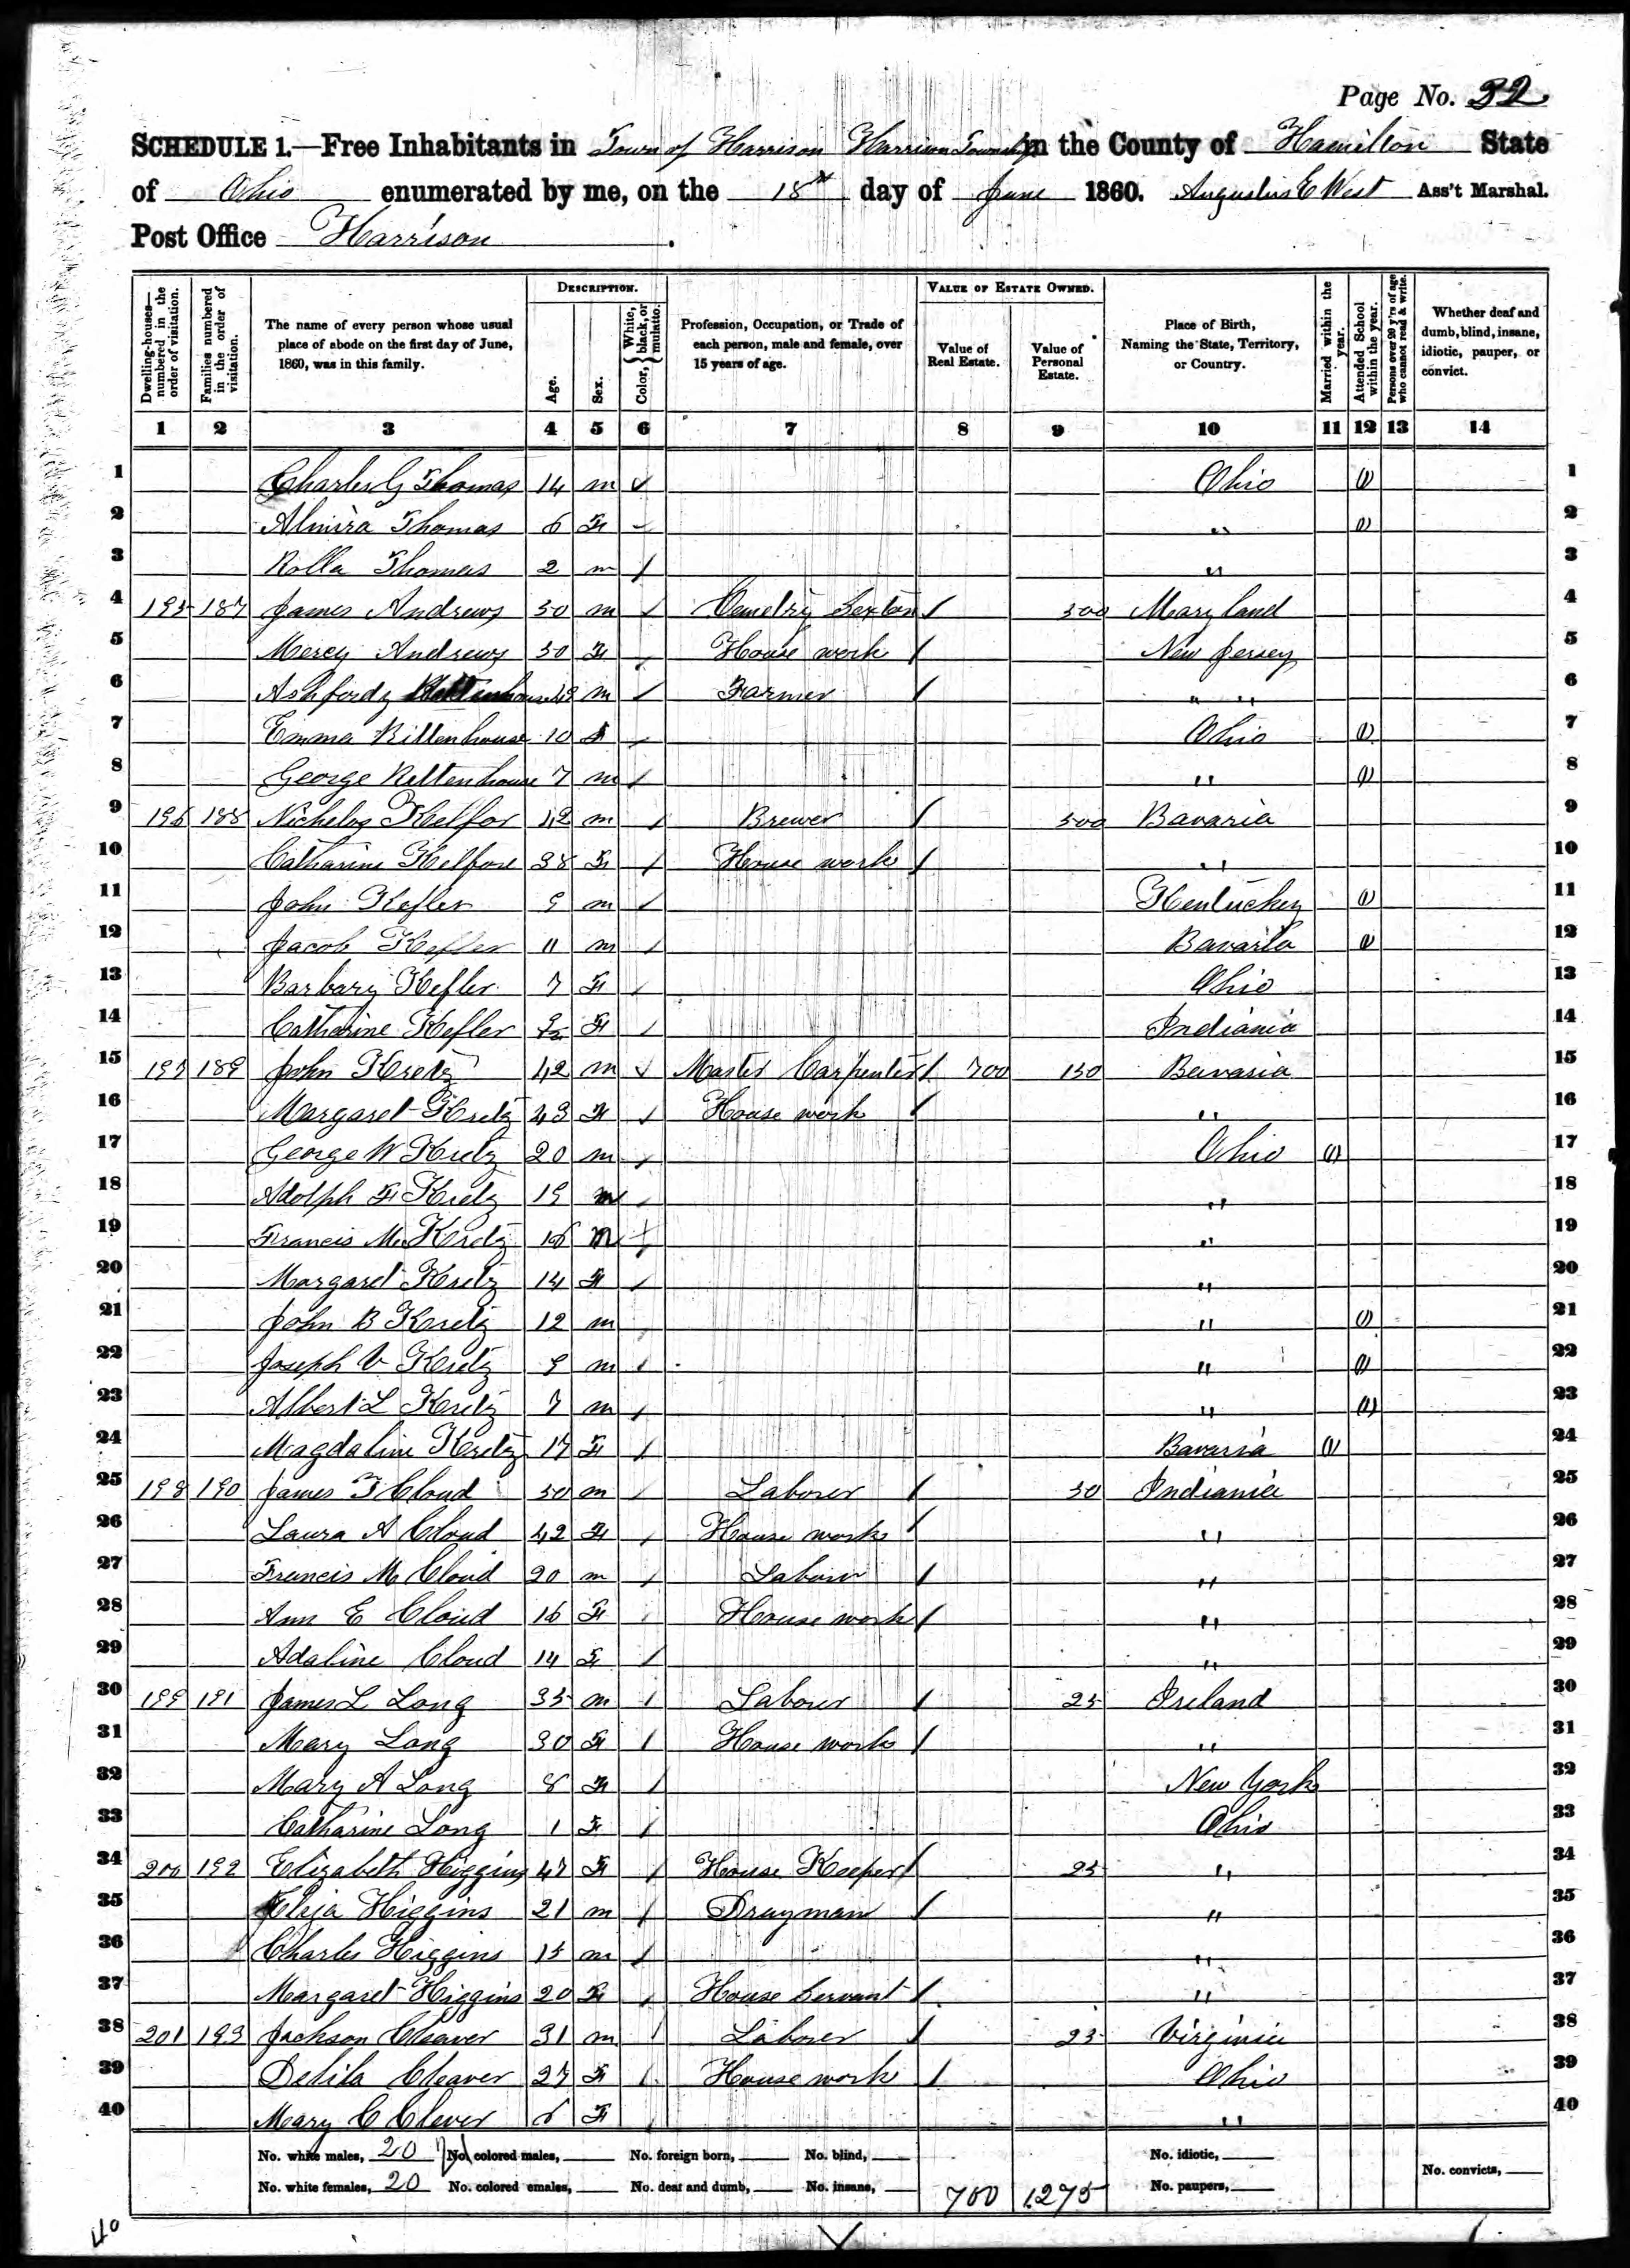 Page No. 32
SCHEDULE 1.—Free Inhabitants in Town of Harrison Harrison Township in the County of Hamilton State
of Ohio enumerated by me, on the 18th day of June 1860. Augustus E West Ass't Marshal.
Post Office Harrison.
DESCRIPTION. VALUE OF ESTATE OWNED.
Dwelling-houses—numbered in the order of visitation. Families numbered in the order of visitation. The name of every person whose usual place of abode on the first day of June, 1860, was in this family. Age. Sex. Color, { White, black, or mulatto. } Profession, Occupation, or Trade of each person, male and female, over 15 years of age. Value of Real Estate. Value of Personal Estate. Place of Birth, Naming the State, Territory, or Country. Married within the year. Attended School within the year. Persons over 20 y'rs of age who cannot read & write. Whether deaf and dumb, blind, insane, idiotic, pauper, or convict.
1 2 3 4 5 6 7 8 9 10 11 12 13 14
1 Charles G Thomas 14 m Ohio 1 1
2 Almira Thomas 6 F " 1 2
3 Rolla Thomas 2 m " 3
4 195 187 James Andrews 50 m Cemetry Sexton / 500 Maryland 4
5 Mercy Andrews 50 F House work / New Jersey 5
6 Ashfordy 42 m / Farmer / " " 6
7 Emma Rittenhouse 10 f / Ohio 1 7
8 George Rittenhouse 7 m / " 1 8
9 196 188 Nichelos Kelfor 42 m / Brewer / 500 Bavaria 9
10 Catharine Kelfore 38 F / House work / " 10
11 John Kefler 9 m / Kentuckey 1 11
12 Jacob Kefler 11 m / Bavaria 1 12
13 Barbary Kefler 7 F / Ohio 13
14 Catharine Kefler F / Indiania 14
15 197 189 John Kretz 42 m / Master Carpenter / 700 150 Bavaria 15
16 Margaret Kretz 43 F / House work / " 16
17 George W Kretz 20 m / Ohio 1 17
18 Adolph F Kretz 19 m / " 18
19 Francis M Kretz 16 M / " 19
20 Margaret Kretz 14 F / " 20
21 John B Kretz 12 m / " 1 21
22 Joseph V Kretz 9 m / " 1 22
23 Albert L Kretz 7 m / " 1 23
24 Magdaline Kretz 17 F / Bavaria 1 24
25 198 190 James F Cloud 50 m / Laborer / 50 Indiania 25
26 Laura A Cloud 42 F / House work / " 26
27 Francis M Cloud 20 m / Laborer / " 27
28 Ann E Cloud 16 F / House work / " 28
29 Adaline Cloud 14 F / " 29
30 199 191 James L Long 35 m / Laborer / 25 Ireland 30
31 Mary Long 30 F / House work / " 31
32 Mary A Long 8 F / New York 32
33 Catharine Long 1 F / Ohio 33
34 200 192 Elizabeth Higgins 47 F / House Keeper / 25 " 34
35 Elija Higgins 21 m / Drayman / " 35
36 Charles Higgins 15 m / " 36
37 Margaret Higgins 20 F / House Servant / " 37
38 201 193 Jackson Cleaver 31 m / Laborer / 25 Virginia 38
39 Delila Cleaver 27 F / House work / Ohio 39
40 Mary C Clever 6 F / " 40
No. white males, 20 No. colored males, No. foreign born, No. blind, No. idiotic,
No. white females, 20 No. colored emales, No. deaf and dumb, No. insane, 700 1275 No. paupers, No. convicts,
40